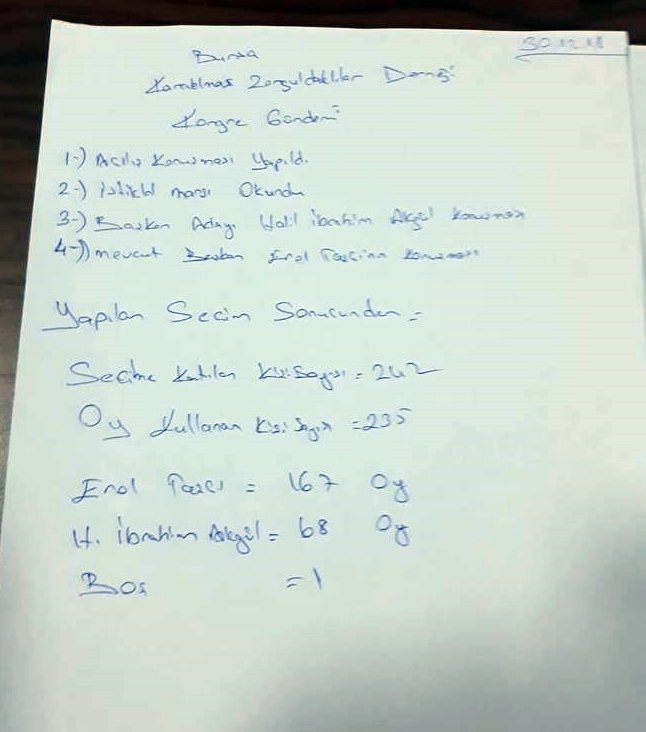 30.12.18
Bursa
Karaelmas Zonguldaklılar Derneği
Kongre Gündemi
1-) Açılış Konuması Yapıldı.
2-) İstiklal marşı Okundu
3-) Başkan Adayı Halil İbrahim Akgül Konuması
4-) mevcut Başkan Erol Taşcının Konuması
Yapılan Seçim Sonucunden =
Seçime Katılan Kişi Sayısı = 242
Oy Kullanan Kişi Sayısı = 235
Erol Taşcı = 167 Oy
H. İbrahim Akgül = 68 Oy
Boş = 1